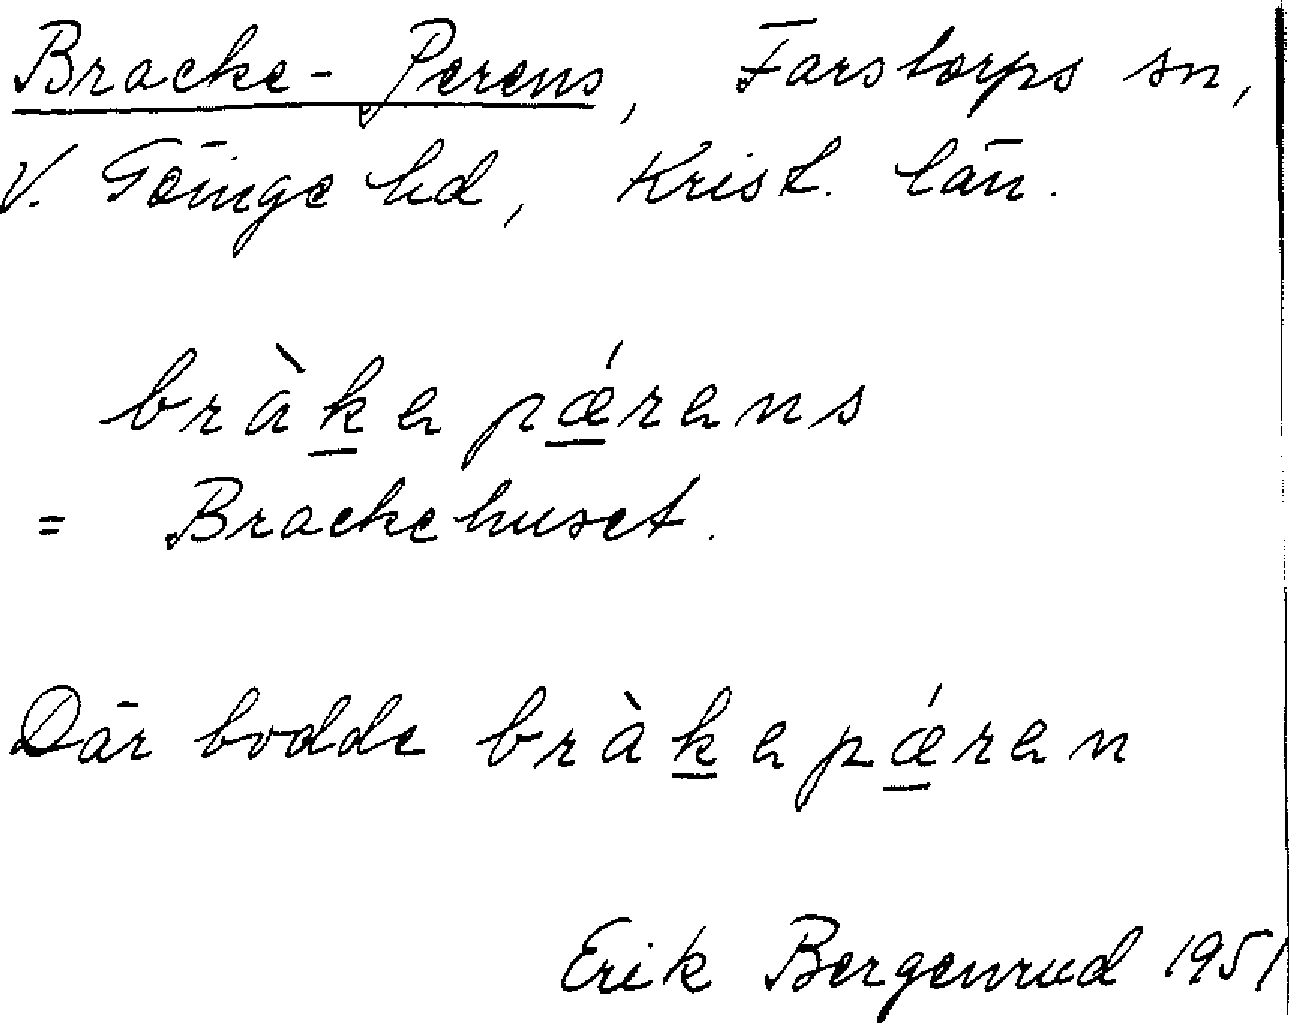 Bracke-Perens, Farstorps sn,
V. Göinge hd, Krist. län.
bràkepǽrens
= Brackehuset.
Där bodde bràkepǽren
Erik Bergenrud 1951